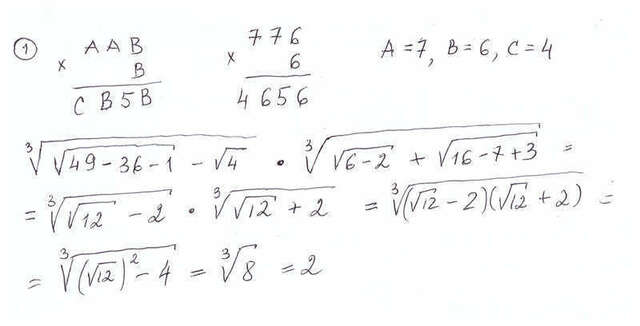 ① AAB × B = CB5B 776 × 6 = 4656 A=7, B=6, C=4
∛(√(49-36-1) - √4) · ∛(√(6-2) + √(16-7+3)) =
= ∛(√12 - 2) · ∛(√12 + 2) = ∛((√12 - 2)(√12 + 2)) =
= ∛((√12)² - 4) = ∛8 = 2